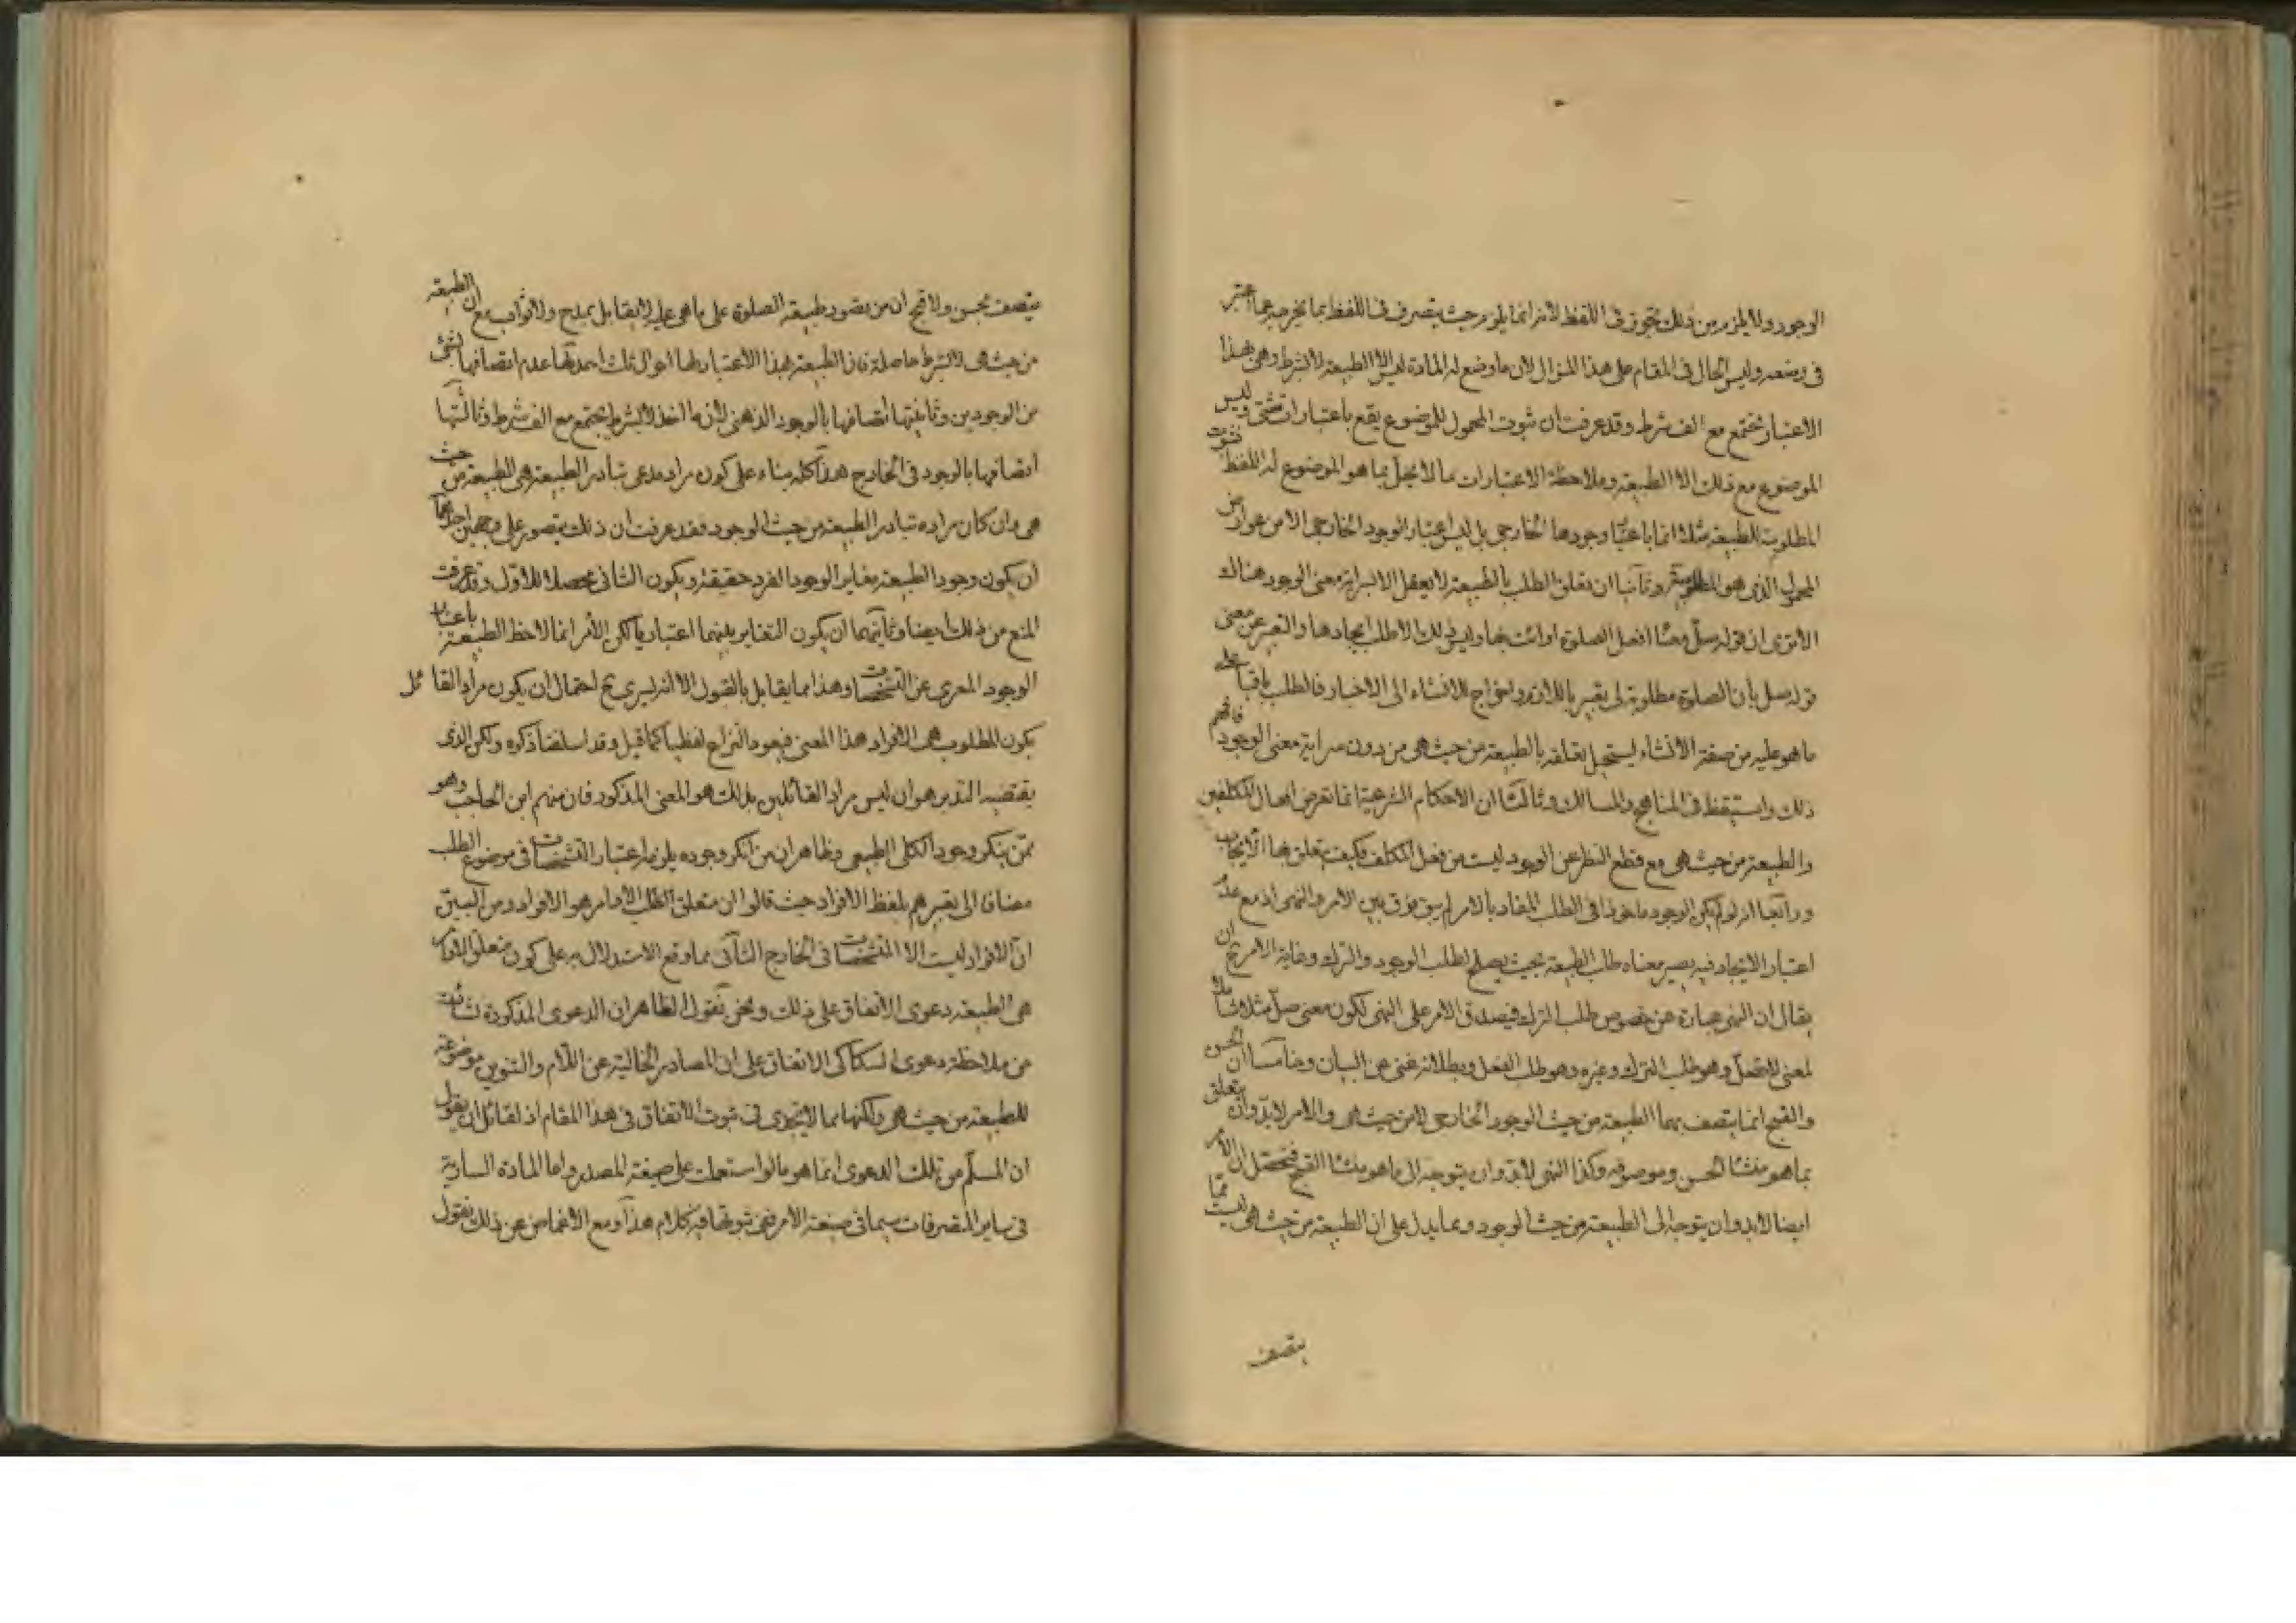 الوجود ولا يلزم من ذلك تجوز في اللفظ لانه انما يلزم حيث يتصرف في اللفظ بما يخرجه عما اعتبر
في وضعه وليس الحال في المقام على هذا المنوال لان ما وضع له المادة ليس الا الطبيعة لا بشرط وهي بهذا
الاعتبار تجتمع مع الف شرط وقد عرفت ان ثبوت المحمول للموضوع يقع باعتبارات شتى وليس
الموضوع مع ذلك الا الطبيعة وملاحظة الاعتبارات مما لا يخل بما هو الموضوع له اللفظ فثبوت
المطلوبية للطبيعة مثلا انما باعتبار وجودها الخارجي بل ليس اعتبار الوجود الخارجي الا من عوارض
المحمول الذي هو المطلوبية وثانيا ان تعلق الطلب بالطبيعة لا يعقل الا بسراية معنى الوجود هناك
الا ترى ان قوله صل معناه افعل الصلوة او ائت بها وليس ذلك الا طلب ايجادها والتعبير عن معنى
قوله صل بان الصلوة مطلوبة لي تعبير باللازم واخراج للانشاء الى الاخبار فالطلب باقيا على
ما هو عليه من صفة الانشاء يستحيل تعلقه بالطبيعة من حيث هي من دون سراية معنى الوجود فافهم
ذلك واستيقظ في المناهج والمسالك وثالثا ان الاحكام الشرعية انما تعرض افعال المكلفين
والطبيعة من حيث هي مع قطع النظر عن الوجود ليست من فعل المكلف فكيف يتعلق بها الايجاب
ورابعا انه لو لم يكن الوجود ماخوذا في الطلب المفاد بالامر لم يبق فرق بين الامر والنهي اذ مع عدم
اعتبار الايجاد فيه يصير معناه طلب الطبيعة بحيث يصلح لطلب الوجود والترك وغاية الامر ح ان
يقال ان النهي عبارة عن خصوص طلب الترك فيصدق الامر على النهي لكون معنى صل مثلا شاملا
لمعنى لا تصل وهو طلب الترك وغيره وهو طلب الفعل وبطلانه غني عن البيان وخامسا ان الحسن
والقبح انما يتصف بهما الطبيعة من حيث الوجود الخارجي لا من حيث هي والامر لا بد وان يتعلق
بما هو منشا الحسن وموصوفه وكذا النهي لا بد وان يتوجه الى ما هو منشا القبح فتحصل ان الامر
ايضا لا بد وان يتوجه الى الطبيعة من حيث الوجود ومما يدل على ان الطبيعة من حيث هي ليست مما
يتصف
يتصف بحسن ولا قبح ان من تصور طبيعة الصلوة على ما هي عليه لا يقابل بمدح ولا ثواب مع ان الطبيعة
من حيث هي لا بشرط حاصلة فان الطبيعة بهذا الاعتبار لها احوال ثلث احديها عدم اتصافها بشئ
من الوجودين وثانيتها اتصافها بالوجود الذهني لان ما اخذ لا بشرط يجتمع مع الف شرط وثالثتها
اتصافها بالوجود في الخارج هذا كله بناء على كون مراد مدعي تبادر الطبيعة هي الطبيعة من حيث
هي وان كان مراده تبادر الطبيعة من حيث الوجود فقد عرفت ان ذلك يتصور على وجهين احدهما
ان يكون وجود الطبيعة مغاير الوجود الفرد حقيقة ويكون الثاني محصلا للاول وقد عرفت
المنع من ذلك ايضا وثانيهما ان يكون التغاير بينهما اعتباريا لكن الآمر انما لاحظ الطبيعة باعتبار
الوجود المعرى عن التشخصات وهذا مما يقابل بالقبول الا انه يسري ح احتمال ان يكون مراد القائل
بكون المطلوب هي الافراد هذا المعنى فيعود النزاع لفظيا كما قيل وقد اسلفنا ذكره ولكن الذي
يقتضيه التدبر هو ان ليس مراد القائلين بذلك هو المعنى المذكور فان منهم ابن الحاجب وهو
ممن ينكر وجود الكلي الطبيعي وظاهر ان من انكر وجوده يلزمه اعتبار التشخصات في موضوع الطلب
مضافا الى تعبيرهم بلفظ الافراد حيث قالوا ان متعلق الاوامر هو الافراد ومن البين
ان الافراد ليست الا المتشخصات في الخارج الثاني مما وقع الاستدلال به على كون متعلق الاوامر
هي الطبيعة دعوى الاتفاق على ذلك ونحن نقول الظاهر ان الدعوى المذكورة نشات
من ملاحظة دعوى السكاكي الاتفاق على ان المصادر الخالية عن اللام والتنوين موضوعة
للطبيعة من حيث هي ولكنها مما لا يجدي في ثبوت الاتفاق في هذا المقام اذ لقائل ان يقول
ان المسلم من تلك الدعوى انما هو ما لو استعملت على صيغة المصدر واما المادة السارية
في ساير المتصرفات سيما في صيغة الامر فحين ثبوتها فيه كلام هذا ومع الاغماض عن ذلك نقول